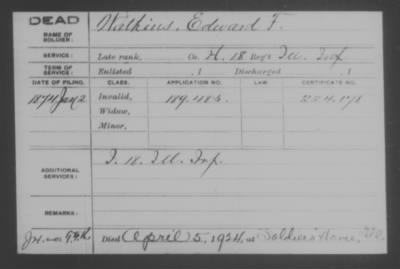 DEAD
NAME OF SOLDIER: Watkins, Edward F.
SERVICE: Late rank, Co. H, 18 Reg't Ill. Inf
TERM OF SERVICE: Enlisted , 1 Discharged , 1
DATE OF FILING. CLASS. APPLICATION NO. LAW. CERTIFICATE NO.
1874 Jan 2 Invalid, 189.485.
Widow,
Minor,
ADDITIONAL SERVICES: I. 18. Ill. Inf.
REMARKS:
Died April 5, 1924, at Soldiers Home,